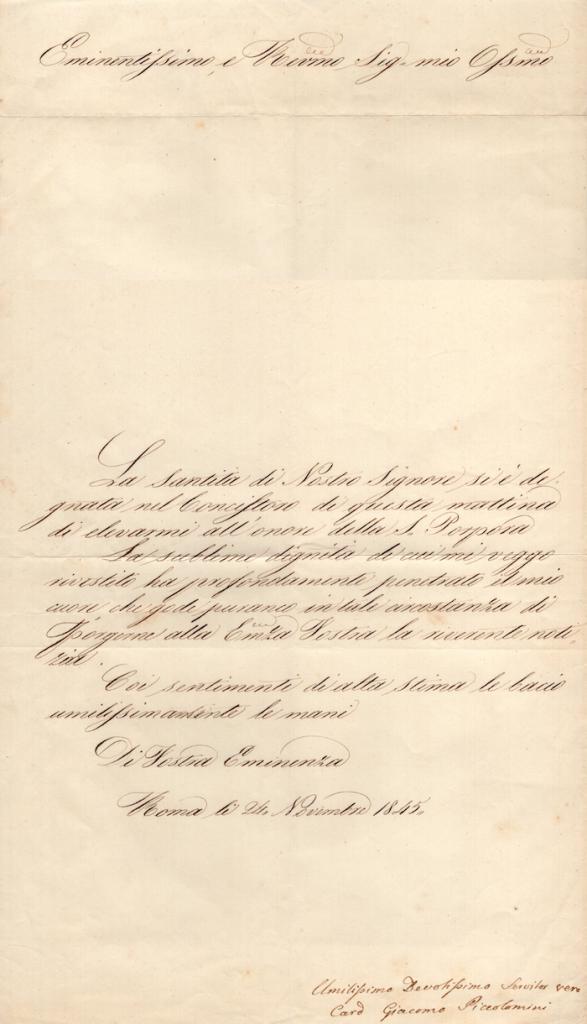 Eminentissimo, e Rev̅mo Sig. mio Ossmo
La Santità di Nostro Signore si è de-
gnata nel Concistoro di questa mattina
di elevarmi all'onore della S. Porpora
La sublime dignità di cui mi veggo
rivestito ha profondamente penetrato il mio
cuore, che gode puranco in tale circostanza di
porgerne alla Emza Vostra la riverente noti-
zia.
Coi sentimenti di alta stima le bacio
umilissimamente le mani
Di Vostra Eminenza
Roma li 24 Novembre 1845.
Umilissimo Devotissimo Servitor vero
Card Giacomo Piccolomini